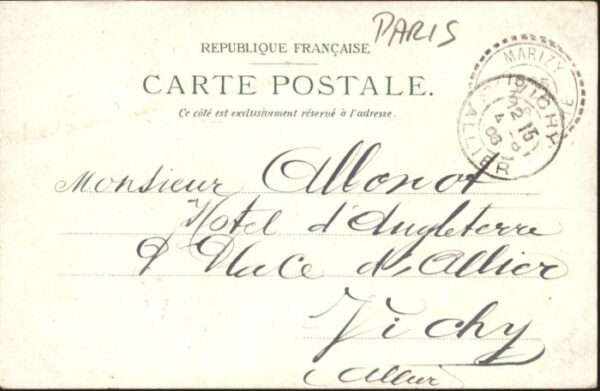 PARIS
REPUBLIQUE FRANÇAISE
CARTE POSTALE.
Ce côté est exclusivement réservé à l'adresse.
MARIZY
VICHY
ALLIER
Monsieur Allonot
Hotel d'Angleterre
9 Place de l'Allier
Vichy
Allier